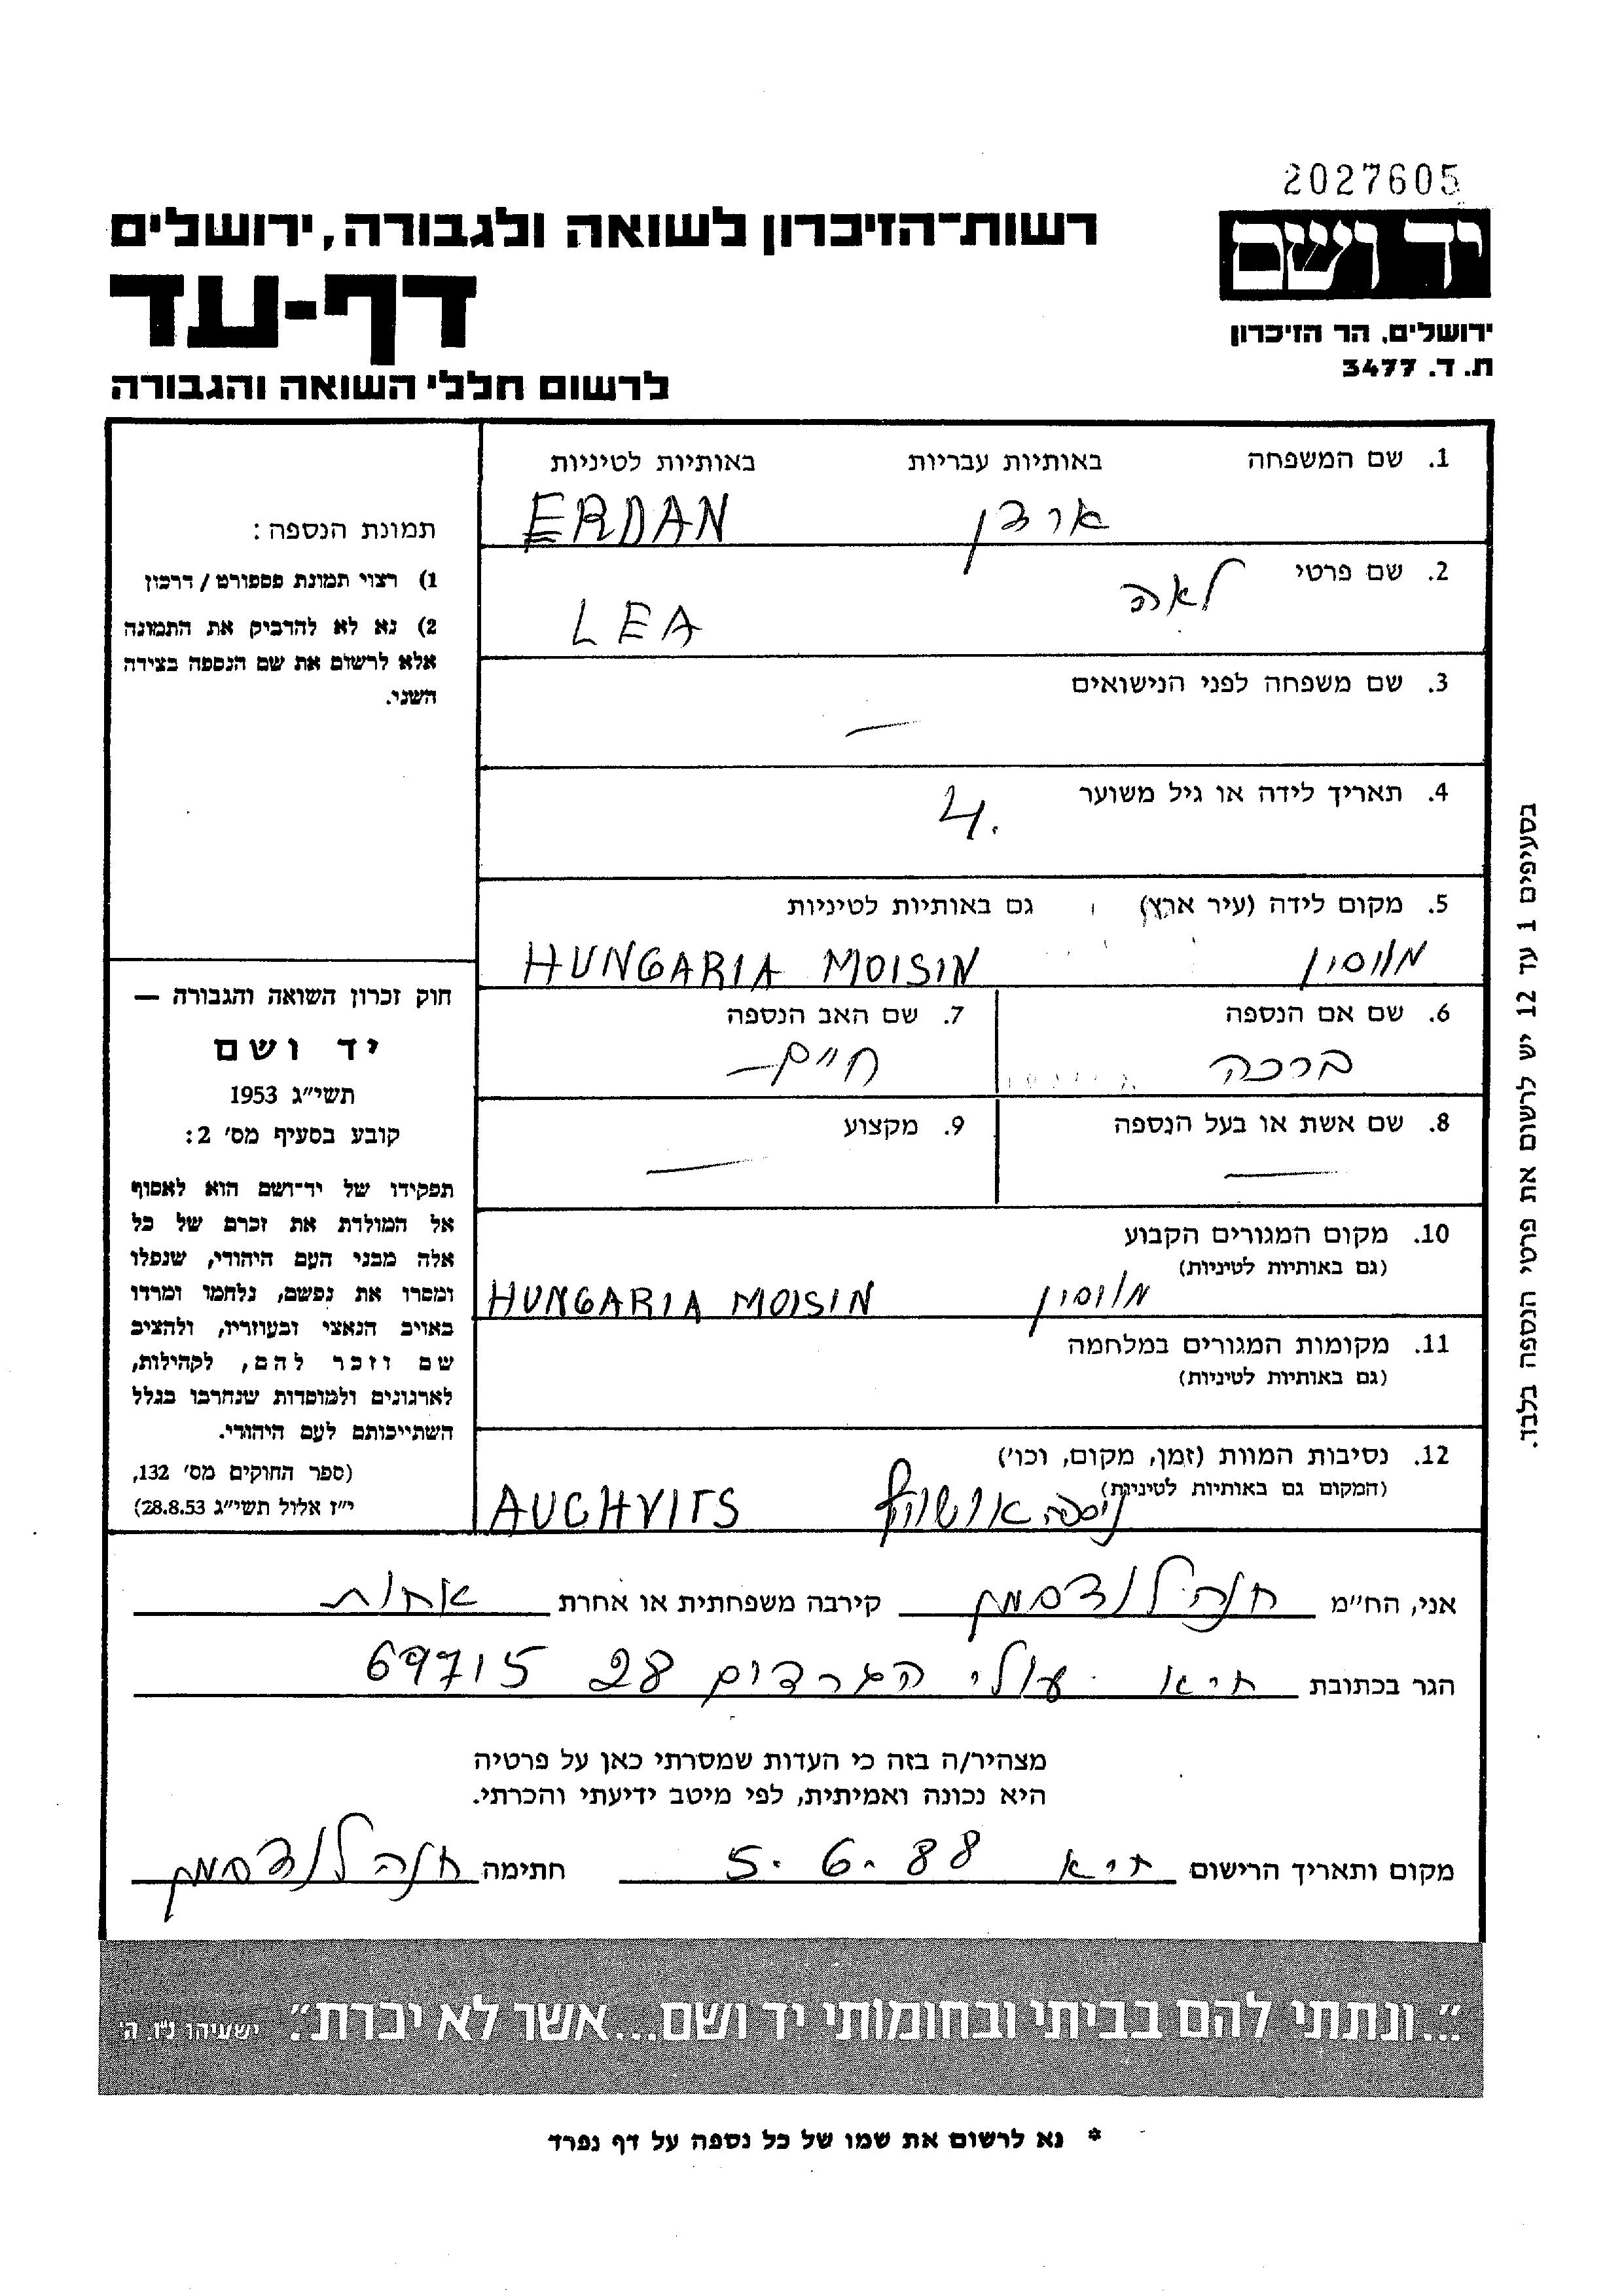 2027605
יד ושם
ירושלים, הר הזיכרון
ת. ד. 3477
רשות־הזיכרון לשואה ולגבורה, ירושלים
דף-עד
לרשום חללי השואה והגבורה
1. שם המשפחה באותיות עבריות באותיות לטיניות
ארדן ERDAN
2. שם פרטי לאה LEA
3. שם משפחה לפני הנישואים
—
4. תאריך לידה או גיל משוער 4.
5. מקום לידה (עיר ארץ) גם באותיות לטיניות
מווסין HUNGARIA MOISIN
6. שם אם הנספה 7. שם האב הנספה
ברכה חיים —
8. שם אשת או בעל הנספה 9. מקצוע
— —
10. מקום המגורים הקבוע
(גם באותיות לטיניות)
מווסין HUNGARIA MOISIN
11. מקומות המגורים במלחמה
(גם באותיות לטיניות)
12. נסיבות המוות (זמן, מקום, וכו')
(המקום גם באותיות לטיניות)
AUCHVITS
תמונת הנספה:
1) רצוי תמונת פספורט / דרכון
2) נא לא להדביק את התמונה
אלא לרשום את שם הנספה בצידה
השני.
חוק זכרון השואה והגבורה —
יד ושם
תשי״ג 1953
קובע בסעיף מס' 2:
תפקידו של יד־ושם הוא לאסוף
אל המולדת את זכרם של כל
אלה מבני העם היהודי, שנפלו
ומסרו את נפשם, נלחמו ומרדו
באויב הנאצי ובעוזריו, ולהציב
שם וזכר להם, לקהילות,
לארגונים ולמוסדות שנחרבו בגלל
השתייכותם לעם היהודי.
(ספר החוקים מס' 132,
י״ז אלול תשי״ג 28.8.53)
בסעיפים 1 עד 12 יש לרשום את פרטי הנספה בלבד.
אני, הח״מ חנה לנדסמן קירבה משפחתית או אחרת אחות
הגר בכתובת ת״א עולי הגרדום 28 69715
מצהיר/ה בזה כי העדות שמסרתי כאן על פרטיה
היא נכונה ואמיתית, לפי מיטב ידיעתי והכרתי.
מקום ותאריך הרישום ת״א 5.6.88 חתימה חנה לנדסמן
״...ונתתי להם בביתי ובחומותי יד ושם...אשר לא יכרת״. ישעיהו נ״ו, ה'
* נא לרשום את שמו של כל נספה על דף נפרד